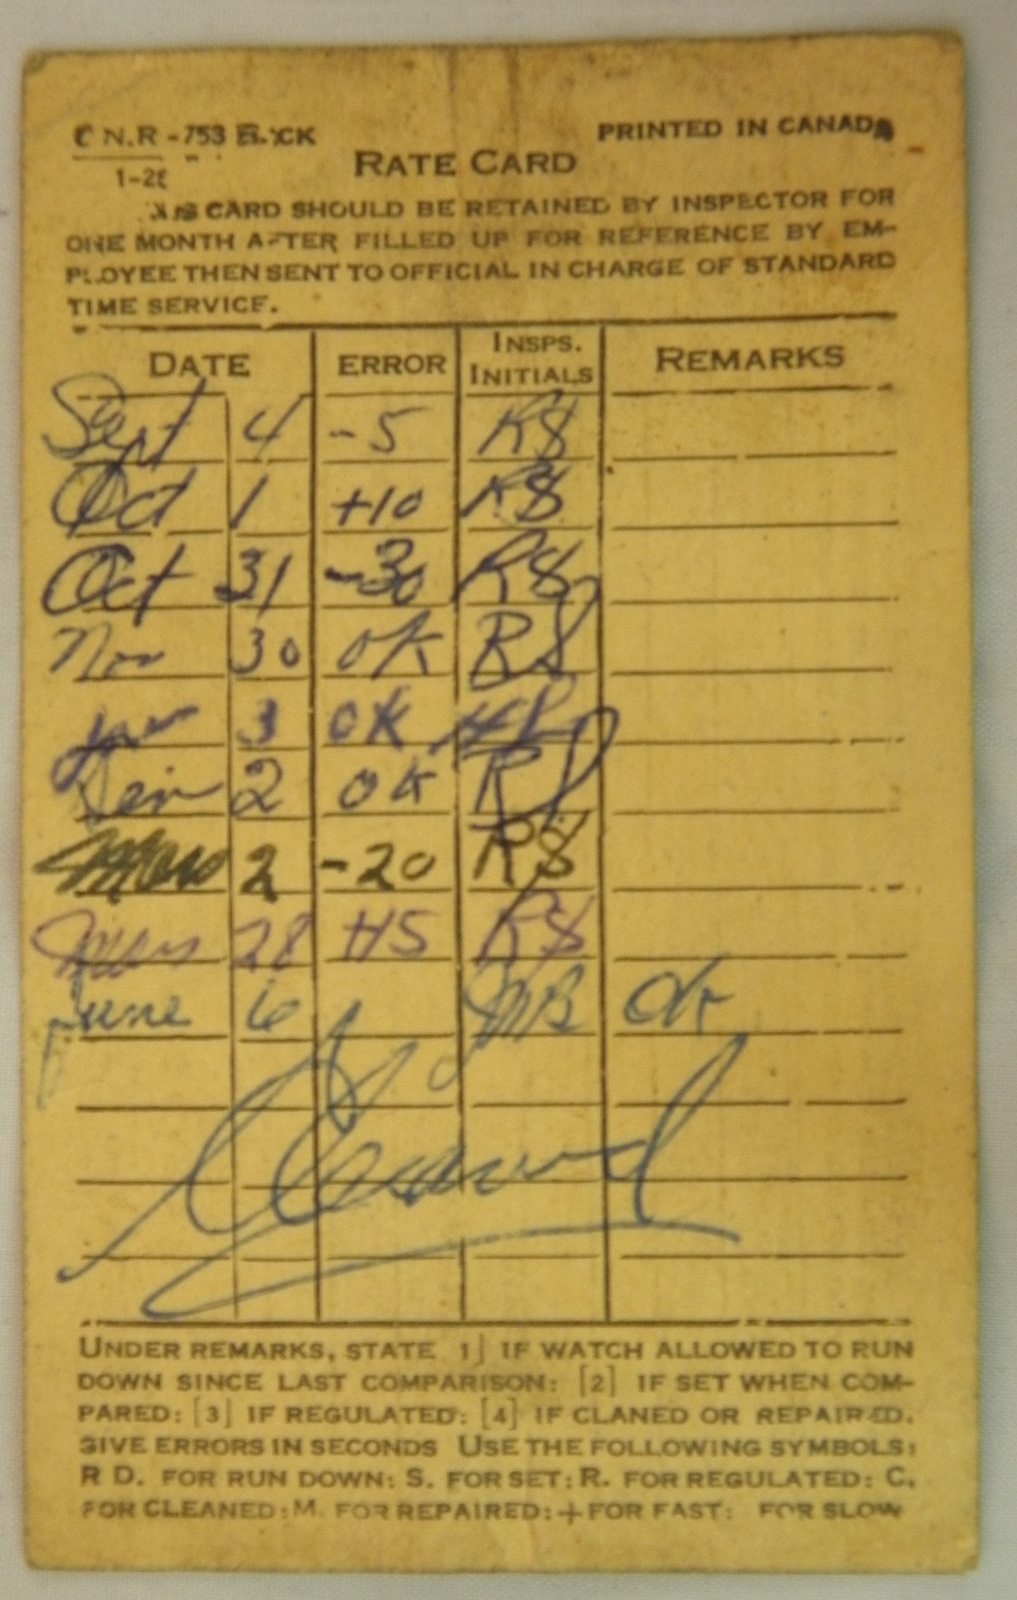 C.N.R-753 BLACK PRINTED IN CANADA
1-28
RATE CARD
THIS CARD SHOULD BE RETAINED BY INSPECTOR FOR
ONE MONTH AFTER FILLED UP FOR REFERENCE BY EM-
PLOYEE THEN SENT TO OFFICIAL IN CHARGE OF STANDARD
TIME SERVICE.
DATE ERROR INSPS. INITIALS REMARKS
Sept 4 -5 RS
Oct 1 +10 RS
Oct 31 -30 RS
Nov 30 OK RS
3 OK
2 OK RS
Mar 2 -20 RS
28 +15 RS
June 6 OK
UNDER REMARKS, STATE 1] IF WATCH ALLOWED TO RUN
DOWN SINCE LAST COMPARISON: [2] IF SET WHEN COM-
PARED: [3] IF REGULATED: [4] IF CLANED OR REPAIRED.
GIVE ERRORS IN SECONDS USE THE FOLLOWING SYMBOLS:
R D. FOR RUN DOWN: S. FOR SET: R. FOR REGULATED: C.
FOR CLEANED: M. FOR REPAIRED: + FOR FAST: FOR SLOW